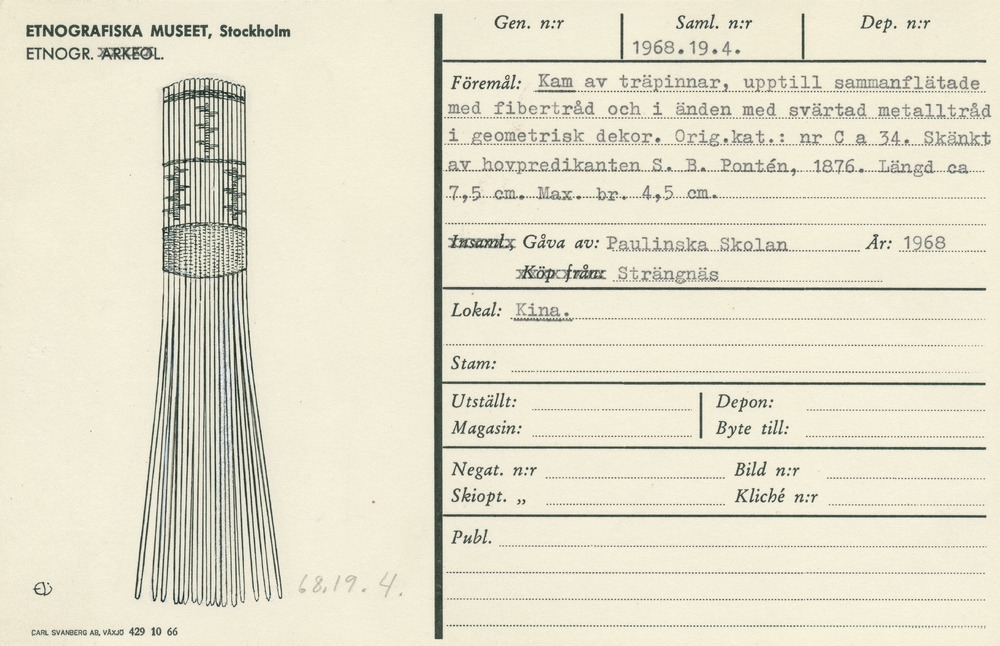 ETNOGRAFISKA MUSEET, Stockholm
ETNOGR. ARKEOL.
Gen. n:r
Saml. n:r
1968.19.4.
Dep. n:r
Föremål: Kam av träpinnar, upptill sammanflätade
med fibertråd och i änden med svärtad metalltråd
i geometrisk dekor. Orig.kat.: nr C a 34. Skänkt
av hovpredikanten S. B. Pontén, 1876. Längd ca
7,5 cm. Max. br. 4,5 cm.
Insaml., Gåva av: Paulinska Skolan År: 1968
Köp från: Strängnäs
Lokal: Kina.
Stam:
Utställt:
Depon:
Magasin:
Byte till:
Negat. n:r
Bild n:r
Skiopt. „
Kliché n:r
Publ.
68.19.4.
CARL SVANBERG AB, VÄXJÖ 429 10 66